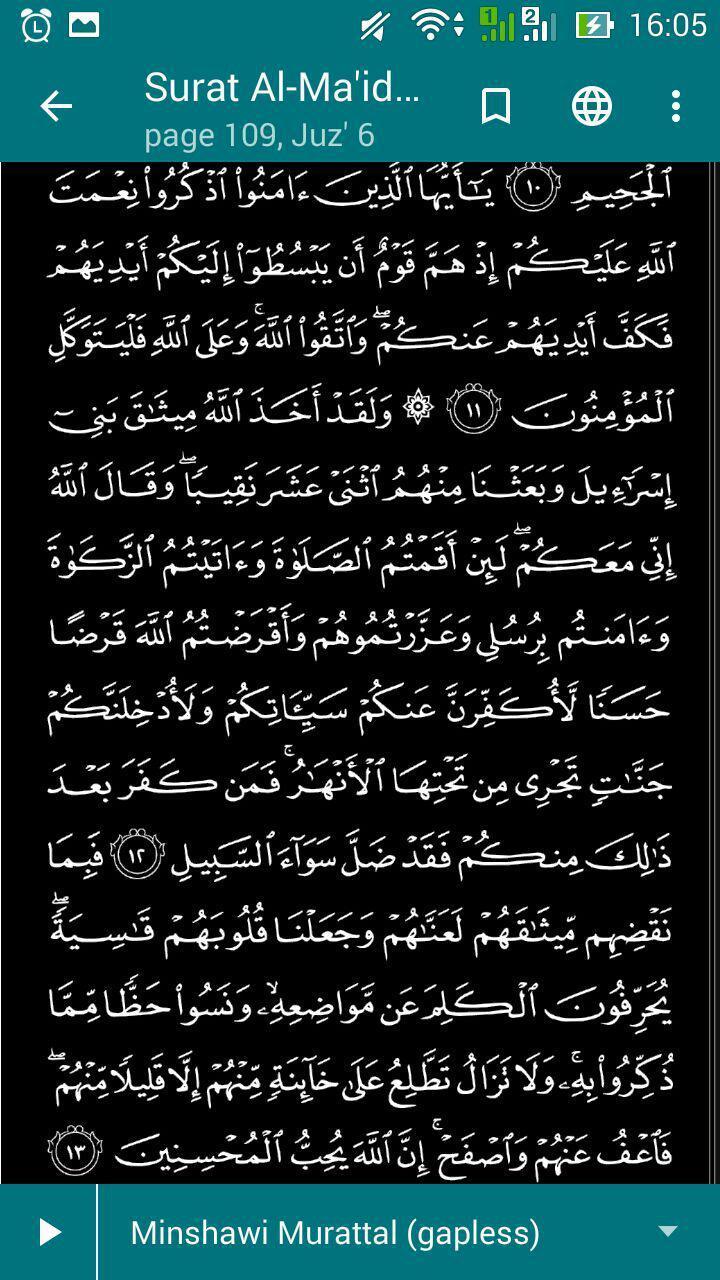 16:05
Surat Al-Ma'id...
page 109, Juz' 6
ٱلْجَحِيمِ ١٠ يَـٰٓأَيُّهَا ٱلَّذِينَ ءَامَنُوا۟ ٱذْكُرُوا۟ نِعْمَتَ
ٱللَّهِ عَلَيْكُمْ إِذْ هَمَّ قَوْمٌ أَن يَبْسُطُوٓا۟ إِلَيْكُمْ أَيْدِيَهُمْ
فَكَفَّ أَيْدِيَهُمْ عَنكُمْ ۖ وَٱتَّقُوا۟ ٱللَّهَ ۚ وَعَلَى ٱللَّهِ فَلْيَتَوَكَّلِ
ٱلْمُؤْمِنُونَ ١١ ۞ وَلَقَدْ أَخَذَ ٱللَّهُ مِيثَـٰقَ بَنِىٓ
إِسْرَٰٓءِيلَ وَبَعَثْنَا مِنْهُمُ ٱثْنَىْ عَشَرَ نَقِيبًا ۖ وَقَالَ ٱللَّهُ
إِنِّى مَعَكُمْ ۖ لَئِنْ أَقَمْتُمُ ٱلصَّلَوٰةَ وَءَاتَيْتُمُ ٱلزَّكَوٰةَ
وَءَامَنتُم بِرُسُلِى وَعَزَّرْتُمُوهُمْ وَأَقْرَضْتُمُ ٱللَّهَ قَرْضًا
حَسَنًا لَّأُكَفِّرَنَّ عَنكُمْ سَيِّـَٔاتِكُمْ وَلَأُدْخِلَنَّكُمْ
جَنَّـٰتٍ تَجْرِى مِن تَحْتِهَا ٱلْأَنْهَـٰرُ ۚ فَمَن كَفَرَ بَعْدَ
ذَٰلِكَ مِنكُمْ فَقَدْ ضَلَّ سَوَآءَ ٱلسَّبِيلِ ١٢ فَبِمَا
نَقْضِهِم مِّيثَـٰقَهُمْ لَعَنَّـٰهُمْ وَجَعَلْنَا قُلُوبَهُمْ قَـٰسِيَةً ۖ
يُحَرِّفُونَ ٱلْكَلِمَ عَن مَّوَاضِعِهِۦ ۙ وَنَسُوا۟ حَظًّا مِّمَّا
ذُكِّرُوا۟ بِهِۦ ۚ وَلَا تَزَالُ تَطَّلِعُ عَلَىٰ خَآئِنَةٍ مِّنْهُمْ إِلَّا قَلِيلًا مِّنْهُمْ ۖ
فَٱعْفُ عَنْهُمْ وَٱصْفَحْ ۚ إِنَّ ٱللَّهَ يُحِبُّ ٱلْمُحْسِنِينَ ١٣
Minshawi Murattal (gapless)